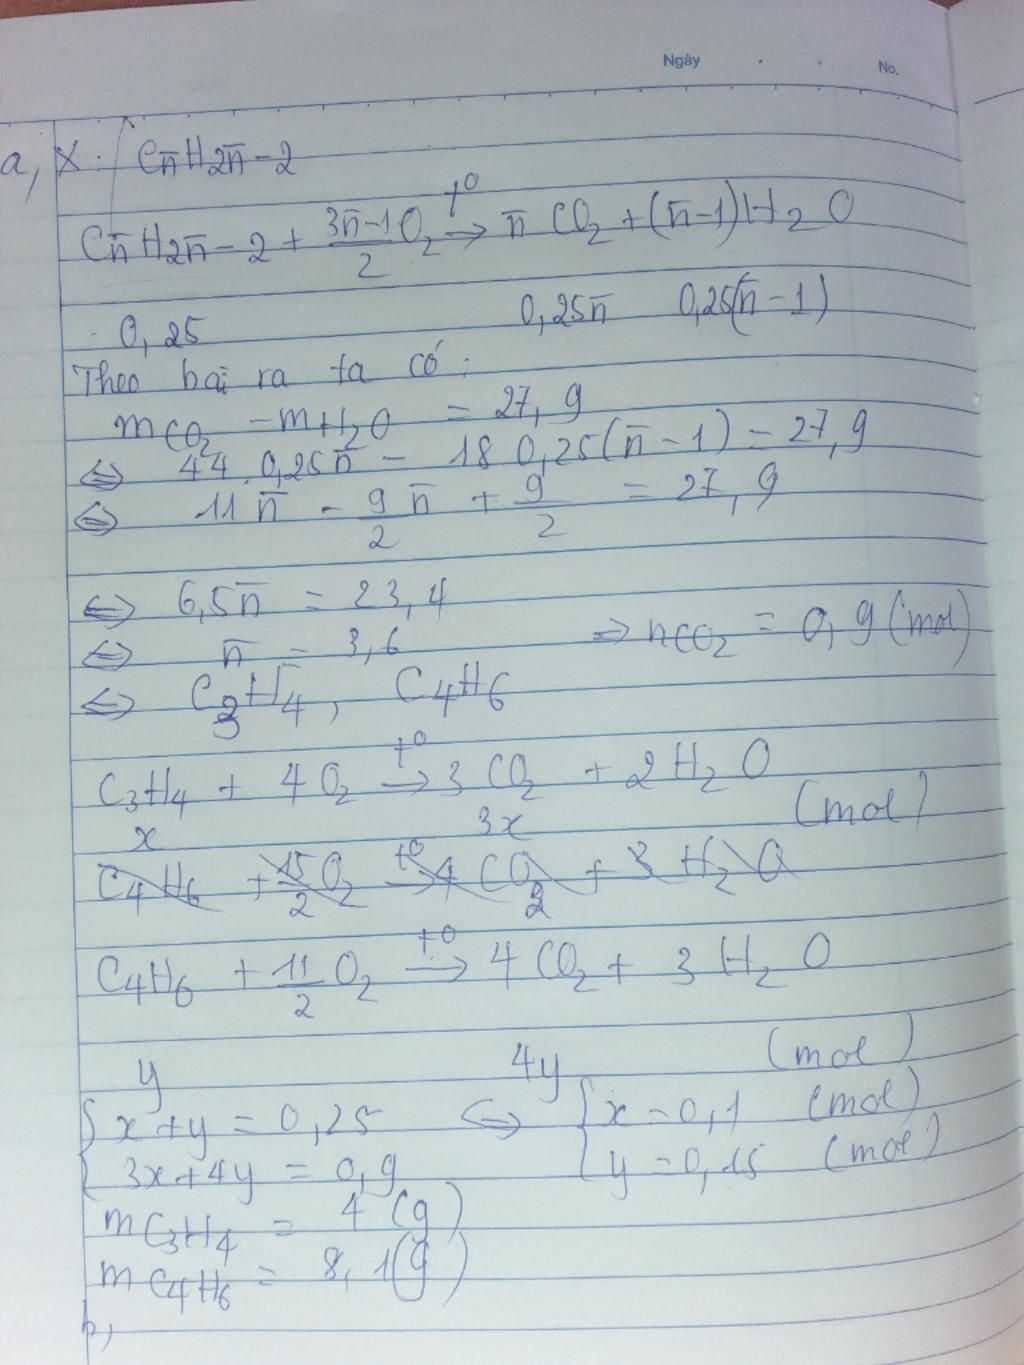 Ngày . . No.
a, X: Cn̄H2n̄-2
Cn̄H2n̄-2 + (3n̄-1)/2 O2 →t° n̄ CO2 + (n̄-1)H2O
0,25 0,25n̄ 0,25(n̄-1)
Theo bài ra ta có:
mCO2 - mH2O = 27,9
⇔ 44.0,25n̄ - 18 0,25(n̄-1) = 27,9
⇔ 11n̄ - 9/2 n̄ + 9/2 = 27,9
⇔ 6,5n̄ = 23,4
⇔ n̄ = 3,6 ⇒ nCO2 = 0,9 (mol)
⇔ C3H4, C4H6
C3H4 + 4O2 →t° 3CO2 + 2H2O
x 3x (mol)
C4H6 + 15/2 O2 →t° 4CO2 + 3H2O
C4H6 + 11/2 O2 →t° 4CO2 + 3H2O
y 4y (mol)
{ x+y = 0,25 ⇔ { x = 0,1 (mol)
3x+4y = 0,9 y = 0,15 (mol)
mC3H4 = 4 (g)
mC4H6 = 8,1(g)
b,